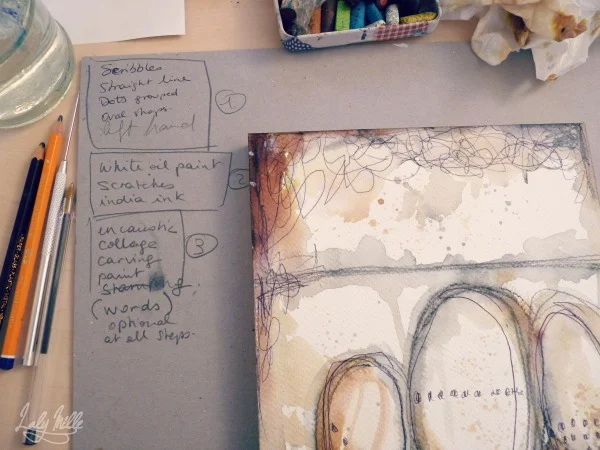 Scribbles
Straight line
Dots grouped
oval shaps.
left hand
1
White oil paint
Scratches
india ink
2
encaustic
collage
carving
paint
stamping,
3
(words)
optional
at all steps.
Laly Mille